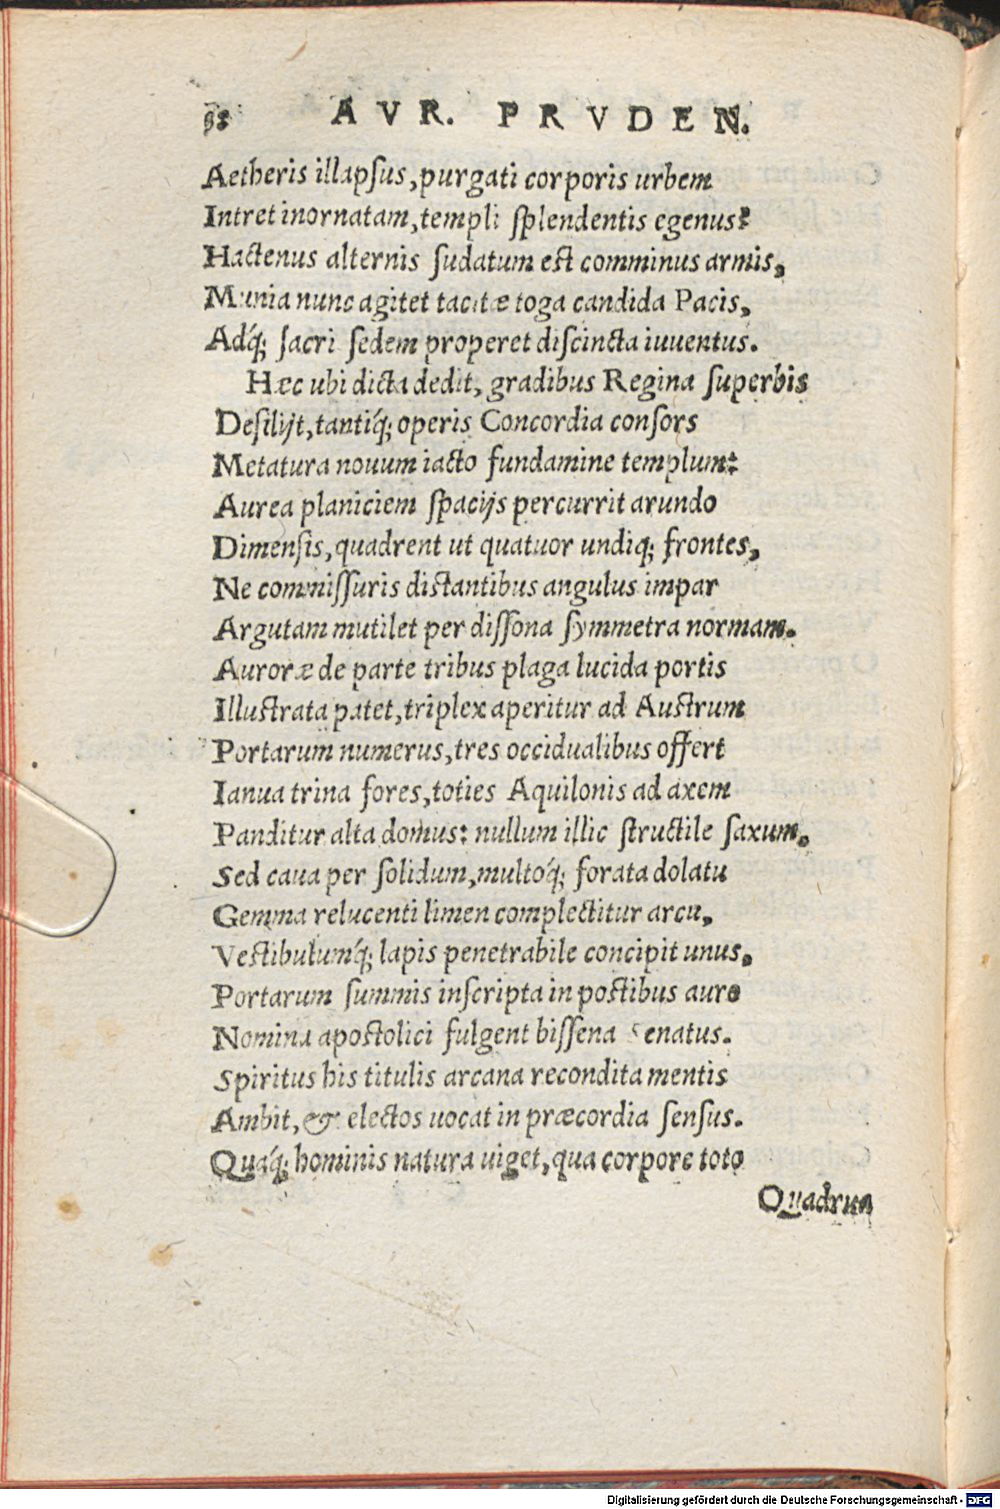 98 AVR. PRVDEN.
Aetheris illapſus, purgati corporis urbem
Intret inornatam, templi ſplendentis egenus?
Hactenus alternis ſudatum est comminus armis,
Munia nunc agitet tacitæ toga candida Pacis,
Adq́; ſacri ſedem properet diſcincta iuuentus.
Hæc ubi dicta dedit, gradibus Regina ſuperbis
Deſilijt, tantiq́; operis Concordia conſors
Metatura nouum iacto fundamine templum:
Aurea planiciem ſpacijs percurrit arundo
Dimenſis, quadrent ut quatuor undiq; frontes,
Ne commiſſuris distantibus angulus impar
Argutam mutilet per diſſona ſymmetra normam.
Auroræ de parte tribus plaga lucida portis
Illustrata patet, triplex aperitur ad Austrum
Portarum numerus, tres occidualibus offert
Ianua trina fores, toties Aquilonis ad axem
Panditur alta domus: nullum illic structile ſaxum,
Sed caua per ſolidum, multoq́; forata dolatu
Gemma relucenti limen complectitur arcu,
Vestibulumq́; lapis penetrabile concipit unus.
Portarum ſummis inſcripta in postibus auro
Nomina apostolici fulgent biſſena Senatus.
Spiritus his titulis arcana recondita mentis
Ambit, & electos uocat in præcordia ſenſus.
Quaq́; hominis natura uiget, qua corpore toto
Quadrua
Digitalisierung gefördert durch die Deutsche Forschungsgemeinschaft - DFG